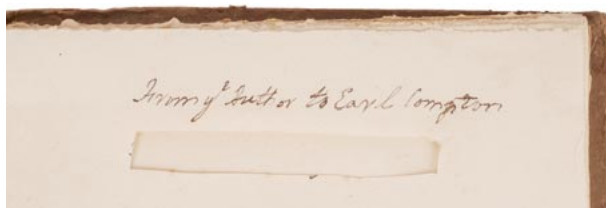 From yͬ Author to Earl Compton